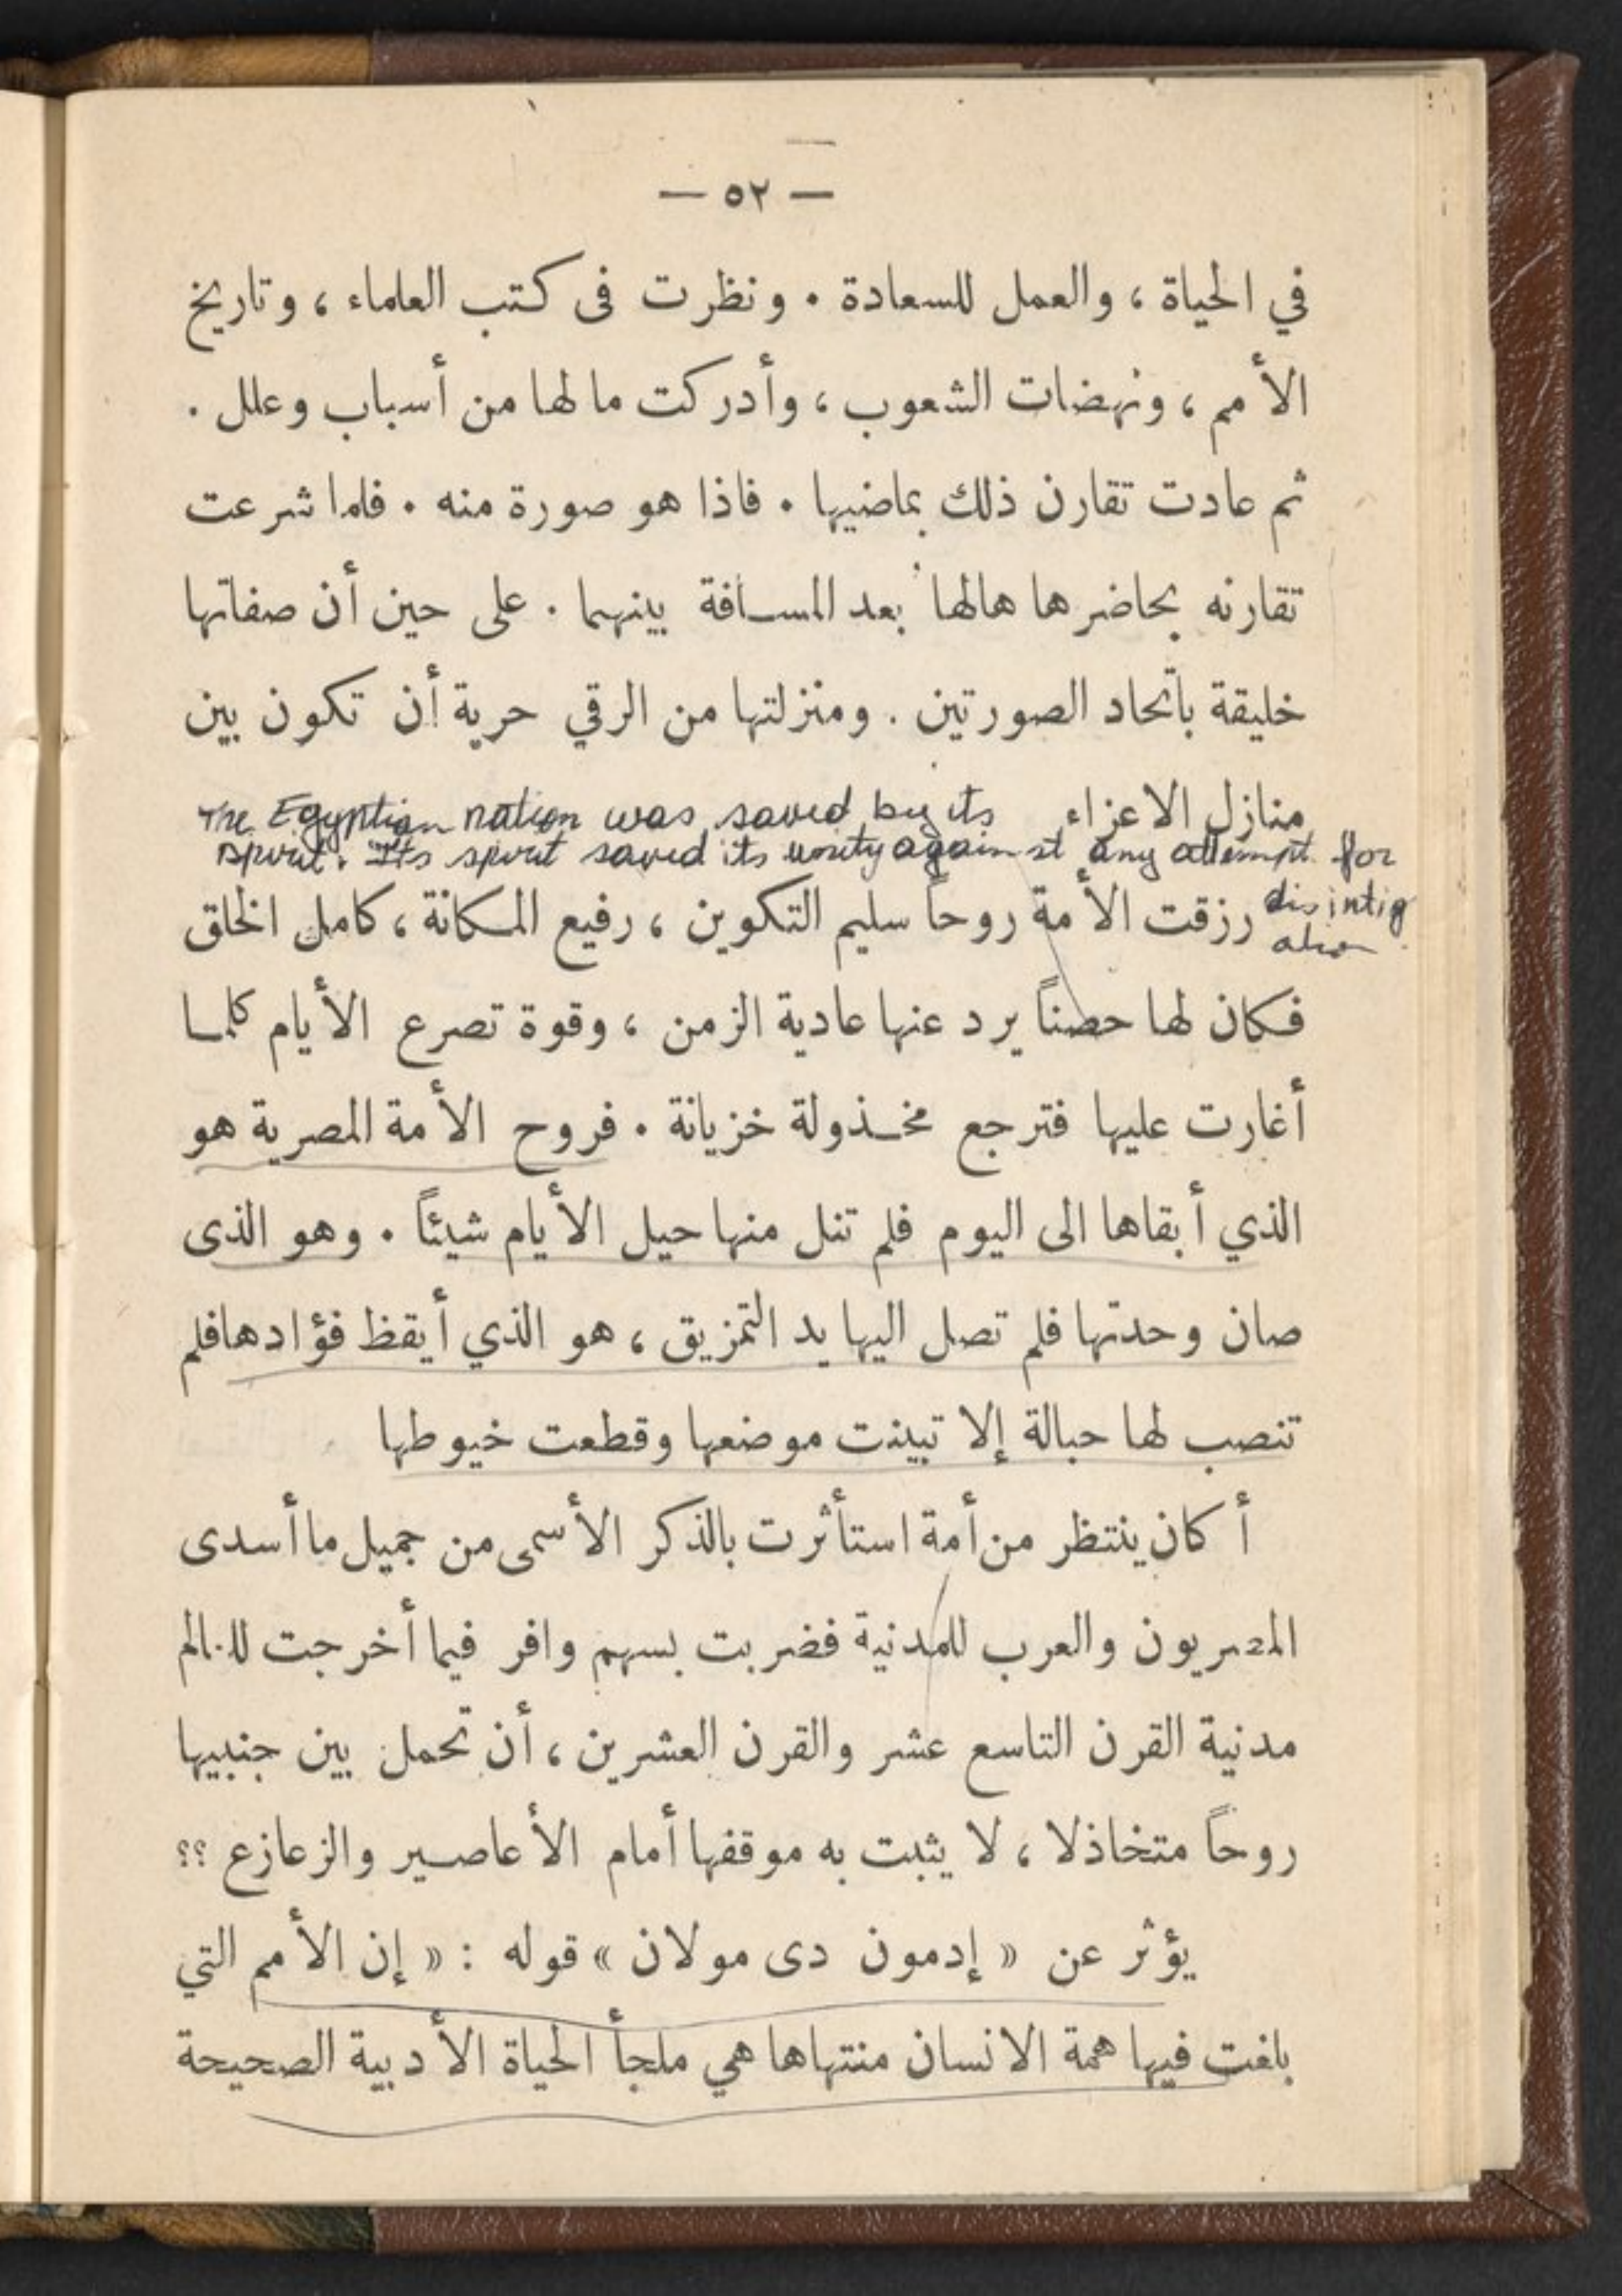 — ٥٢ —
في الحياة ، والعمل للسعادة . ونظرت فى كتب العلماء ، وتاريخ
الأمم ، ونهضات الشعوب ، وأدركت ما لها من أسباب وعلل .
ثم عادت تقارن ذلك بماضيها . فاذا هو صورة منه . فلما شرعت
تقارنه بحاضرها هالها بعد المسافة بينهما . على حين أن صفاتها
خليقة باتحاد الصورتين . ومنزلتها من الرقي حرية أن تكون بين
منازل الاعزاء
The Egyptian nation was saved by its
spirit. Its spirit saved its unity against any attempt for
disintig
ation
رزقت الأمة روحاً سليم التكوين ، رفيع المكانة ، كامل الخلق
فكان لها حصناً يرد عنها عادية الزمن ، وقوة تصرع الأيام كلما
أغارت عليها فترجع مخذولة خزيانة . فروح الأمة المصرية هو
الذي أبقاها الى اليوم فلم تنل منها حيل الأيام شيئاً . وهو الذى
صان وحدتها فلم تصل اليها يد التمزيق ، هو الذي أيقظ فؤادها فلم
تنصب لها حبالة إلا تبينت موضعها وقطعت خيوطها
أكان ينتظر من أمة استأثرت بالذكر الأسمى من جميل ما أسدى
المصريون والعرب للمدنية فضربت بسهم وافر فيما أخرجت للعالم
مدنية القرن التاسع عشر والقرن العشرين ، أن تحمل بين جنبيها
روحاً متخاذلا ، لا يثبت به موقفها أمام الأعاصير والزعازع ؟؟
يؤثر عن « إدمون دى مولان » قوله : « إن الأمم التي
بلغت فيها همة الانسان منتهاها هي ملجأ الحياة الأدبية الصحيحة